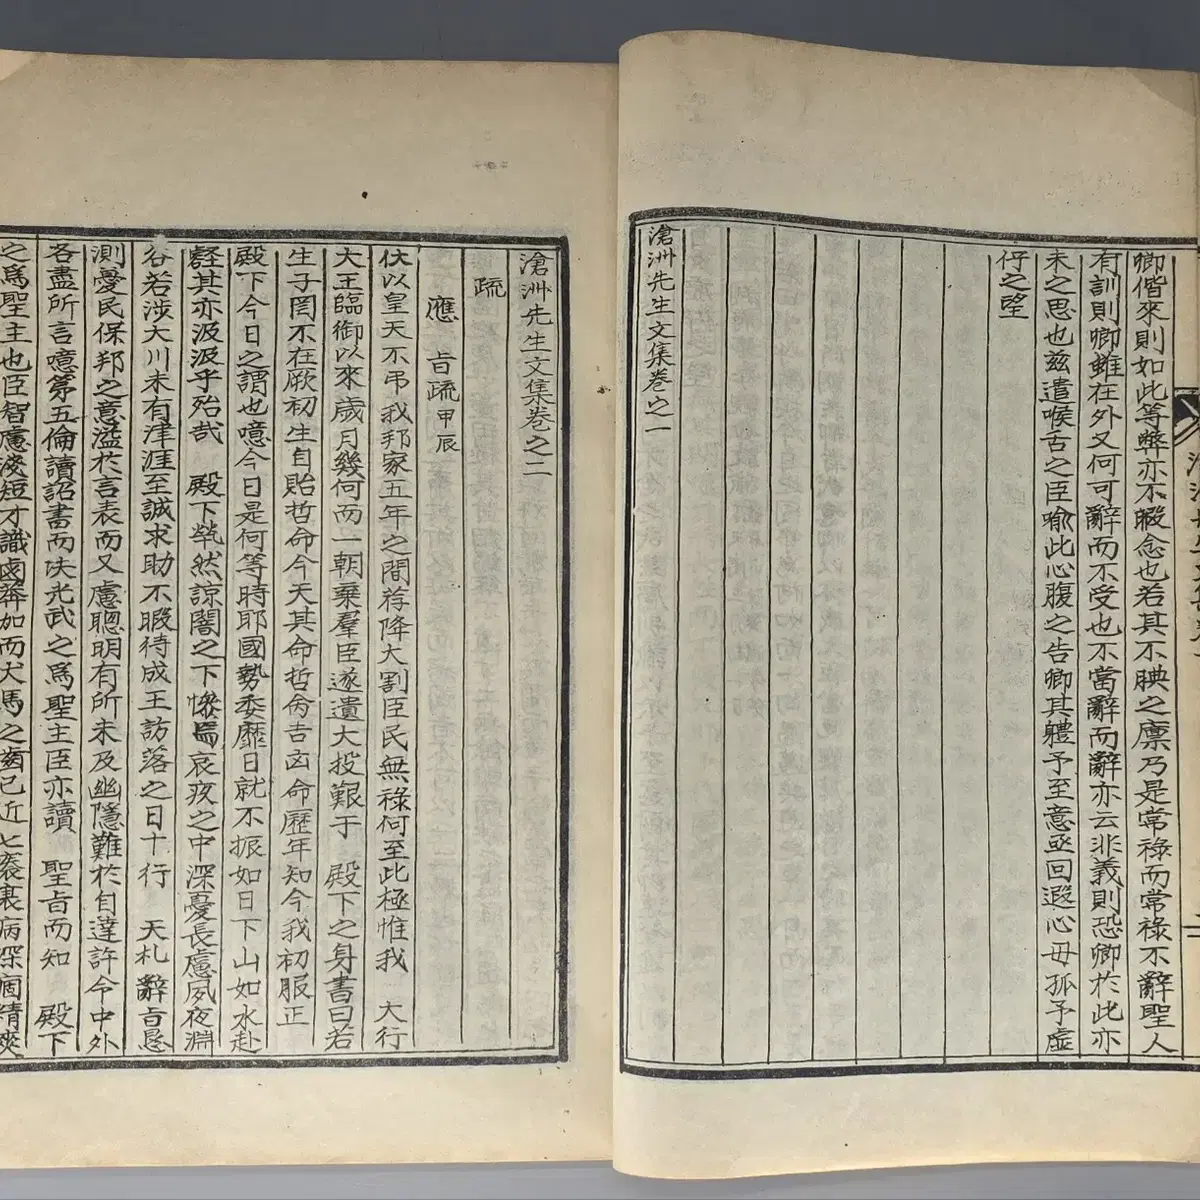 卿偕來則如此等弊亦不暇念也若其不腆之廩乃是常祿而常祿不辭聖人
有訓則卿雖在外又何可辭而不受也不當辭而辭亦云非義則恐卿於此亦
未之思也玆遣喉舌之臣喩此心腹之告卿其體予至意亟回遐心毋孤予虛
佇之望
滄洲先生文集卷之一
滄洲先生文集卷之二
疏
應 旨疏甲辰
伏以皇天不弔我邦家五年之間荐降大割臣民無祿何至此極惟我 大行
大王臨御以來歲月幾何而一朝棄羣臣遂遺大投艱于 殿下之身書曰若
生子罔不在厥初生自貽哲命今天其命哲命吉凶命歷年知今我初服正
殿下今日之謂也噫今日是何等時耶國勢委靡日就不振如日下山如水赴
壑其亦汲汲乎殆哉 殿下煢然諒闇之下慘焉哀疚之中深憂長慮夙夜淵
谷若涉大川未有津涯至誠求助不暇待成王訪落之日十行 天札辭旨懇
測憂民保邦之意溢於言表而又慮聰明有所未及幽隱難於自達許令中外
各盡所言噫第五倫讀詔書而决光武之爲聖主臣亦讀 聖旨而知 殿下
之爲聖主也臣智慮淺短才識鹵莽加而犬馬之齒已近七袠衰病深痼精爽